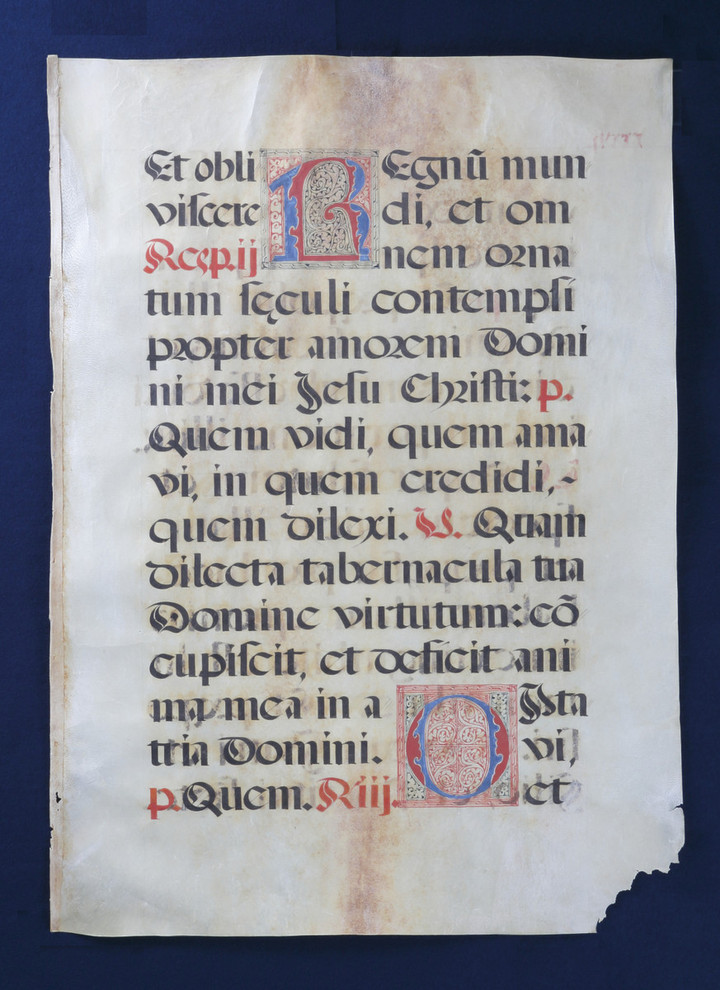 Et obli REgnũ mun
viſcere di, et om
Reſp.ij nem orna
tum ſęculi contempſi
propter amorem Domi
ni mei Jeſu Chriſti: p.
Quem vidi, quem ama
vi, in quem credidi,~
quem dilexi. V. Quam
dilecta tabernacula tua
Domine virtutum: cõ
cupiſcit, et deficit ani
ma mea in a OPta
tria Domini. vi,
p. Quem. R iij. et